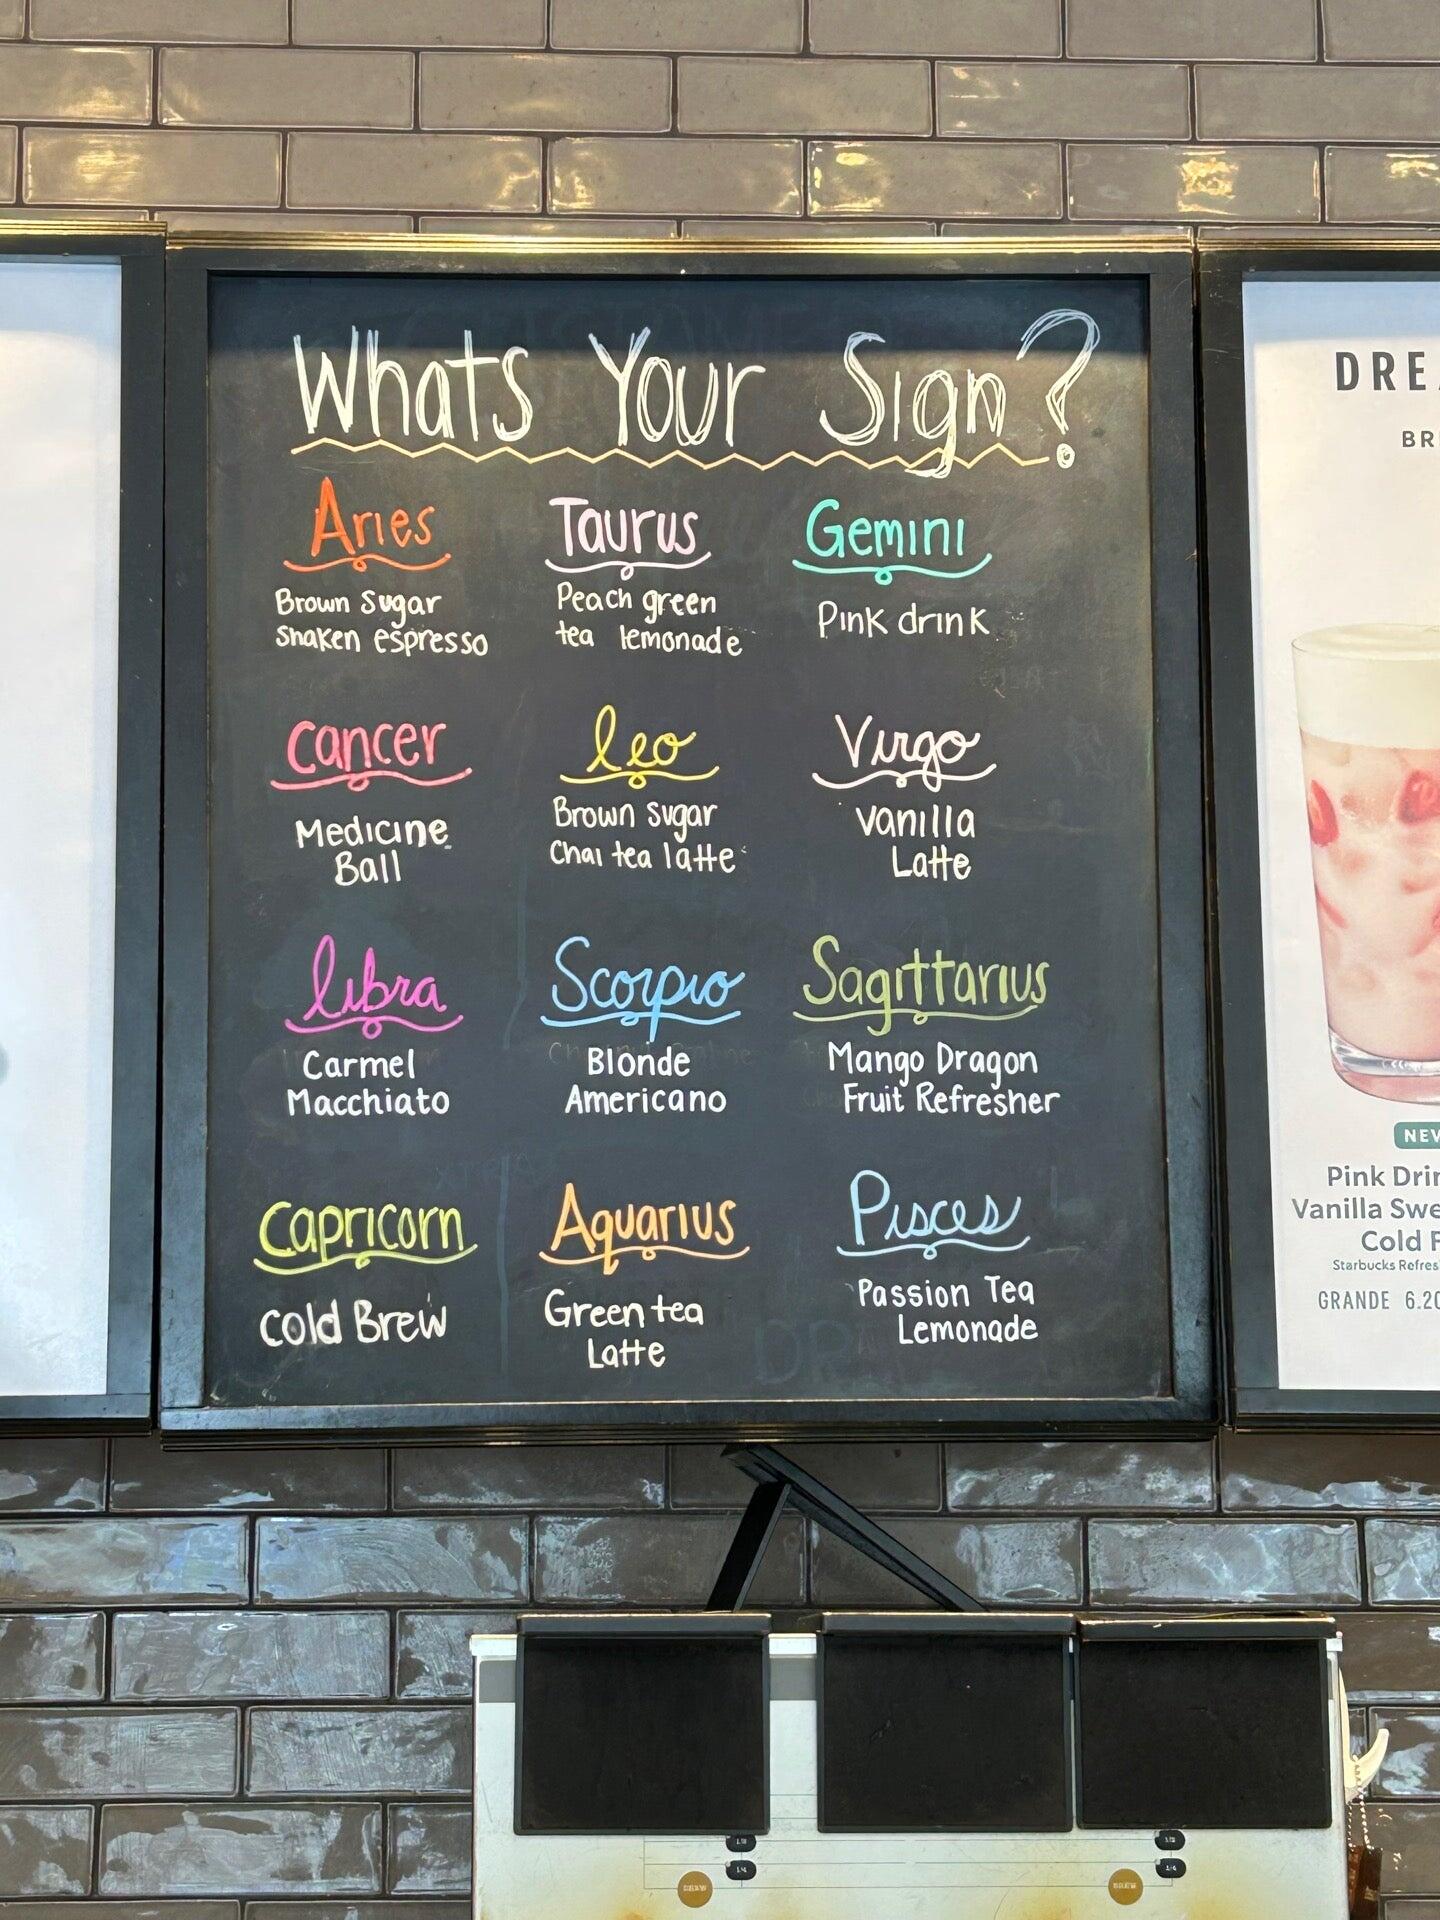 Whats Your Sign?
Aries
Brown Sugar
Shaken espresso
Taurus
Peach green
tea lemonade
Gemini
Pink drink
Cancer
Medicine
Ball
Leo
Brown Sugar
Chai tea latte
Virgo
Vanilla
Latte
Libra
Carmel
Macchiato
Scorpio
Blonde
Americano
Sagittarius
Mango Dragon
Fruit Refresher
Capricorn
Cold Brew
Aquarius
Green tea
Latte
Pisces
Passion Tea
Lemonade
DRE
BR
NEW
Pink Drin
Vanilla Swe
Cold F
Starbucks Refres
GRANDE 6.20
1/2
1/4
BREW
1/2
1/4
BREW